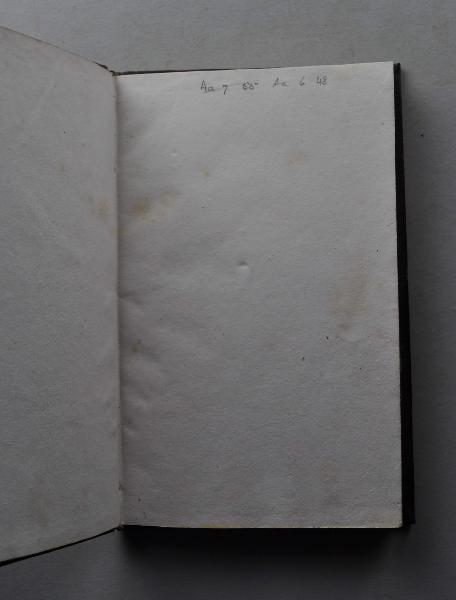 Aa 7 55 Aa 6 48